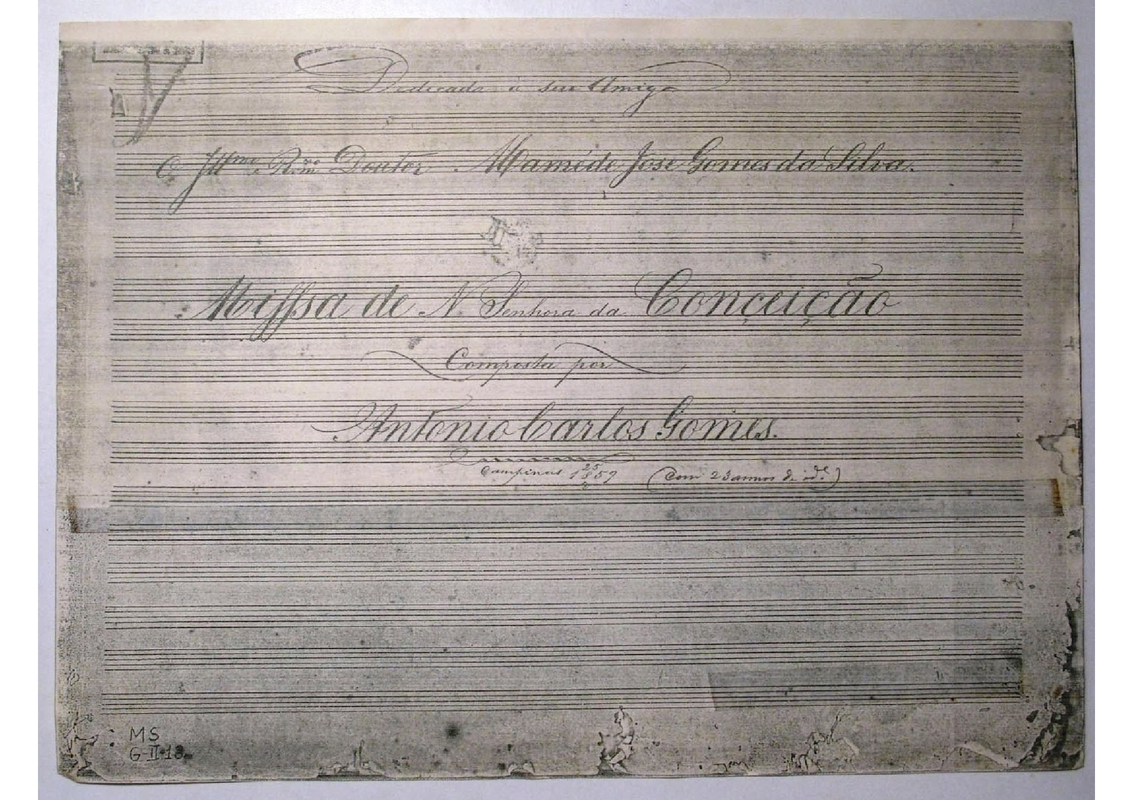 Dedicada a seu Amigo
O Illmo. Rmo. Doutor Mamede José Gomes da Silva.
Missa de N. Senhora da Conçeição
Composta por
Antonio Carlos Gomes.
Campinas 1859 (Com 23 annos de ide.)
MS
G-II-18